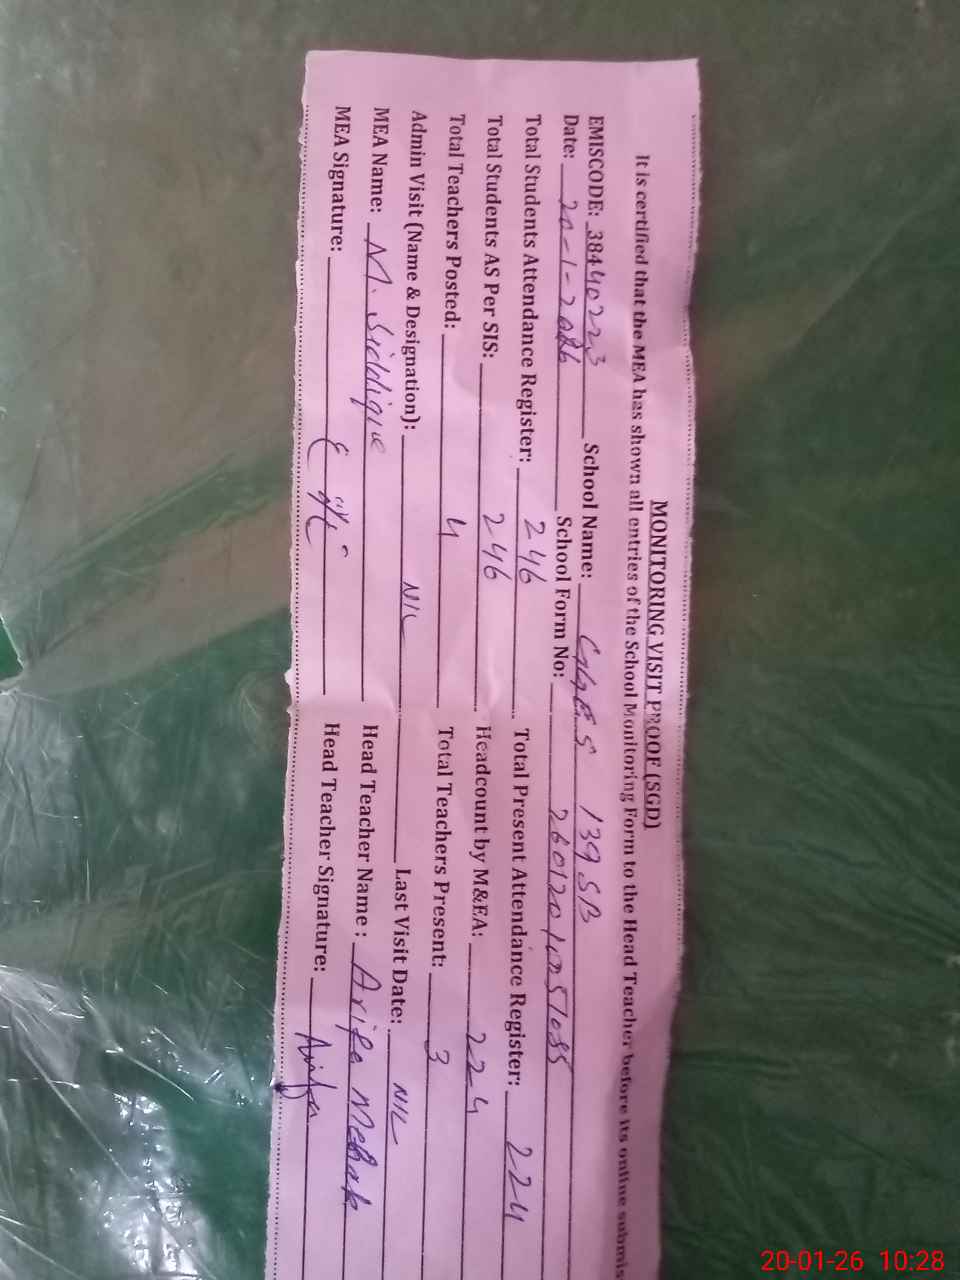 MONITORING VISIT PROOF (SGD)
It is certified that the MEA has shown all entries of the School Monitoring Form to the Head Teacher before its online submis
EMISCODE: 38440223 School Name: GGES 139 SB
Date: 20-1-2026 School Form No:
Total Students Attendance Register: 246 Total Present Attendance Register: 224
Total Students AS Per SIS: 246 Headcount by M&EA: 224
Total Teachers Posted: 4 Total Teachers Present: 3
Admin Visit (Name & Designation): NIL Last Visit Date: NIL
MEA Name: M. Siddique Head Teacher Name : Arifa Mehak
MEA Signature: Head Teacher Signature: Arifa
20-01-26 10:28